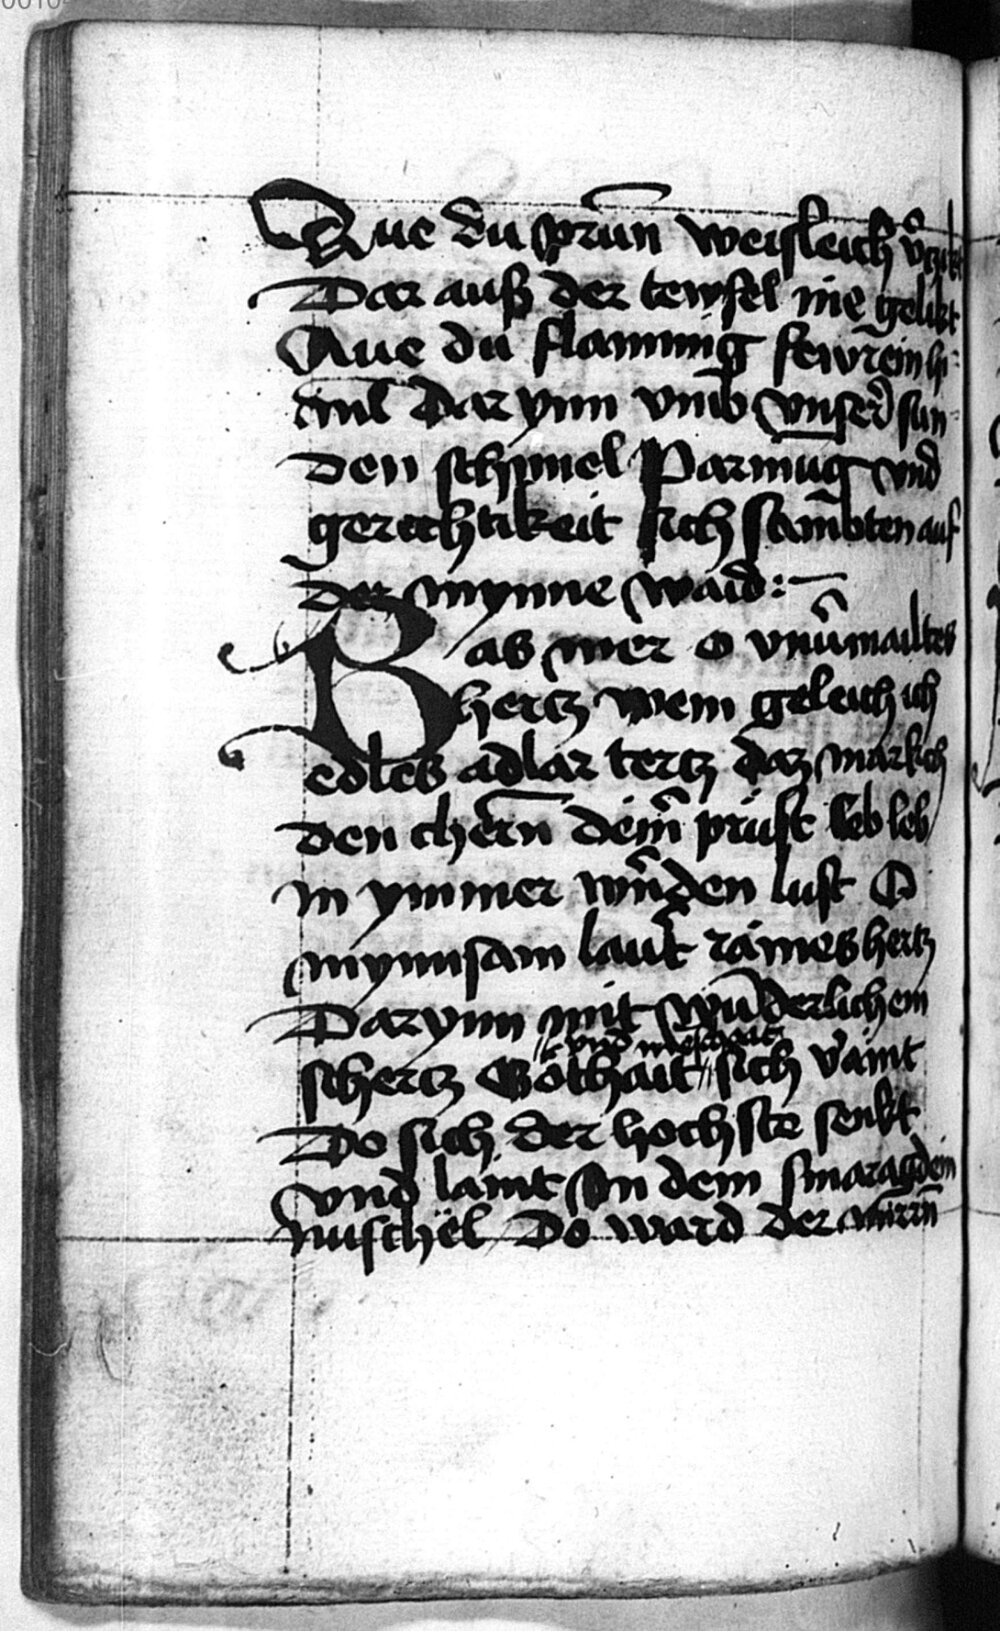 Aue du prūn weisleich v̄zikt
Dar auß der tewfel nie gelikt
Aue du flammig fewrein hi-
mil Dar ynn vmb vnser sun-
den schimel Parmūg vnd
gerechtikeit sich stambten auf
der mynne waid :—
Was mer o vnūmailtes
hertz wem geleich ich
edles adlar tertz daz markch
den chern deim prust leb leb
in ymmer wūnden lust O
mynnsam laut rames hertz
Darynn mit wunderlichem
schertz Gothait vnd mēschait sich v̄aint
Do sich der hochste senkt
vnd laint In dem smaragdein
muschel Do ward der